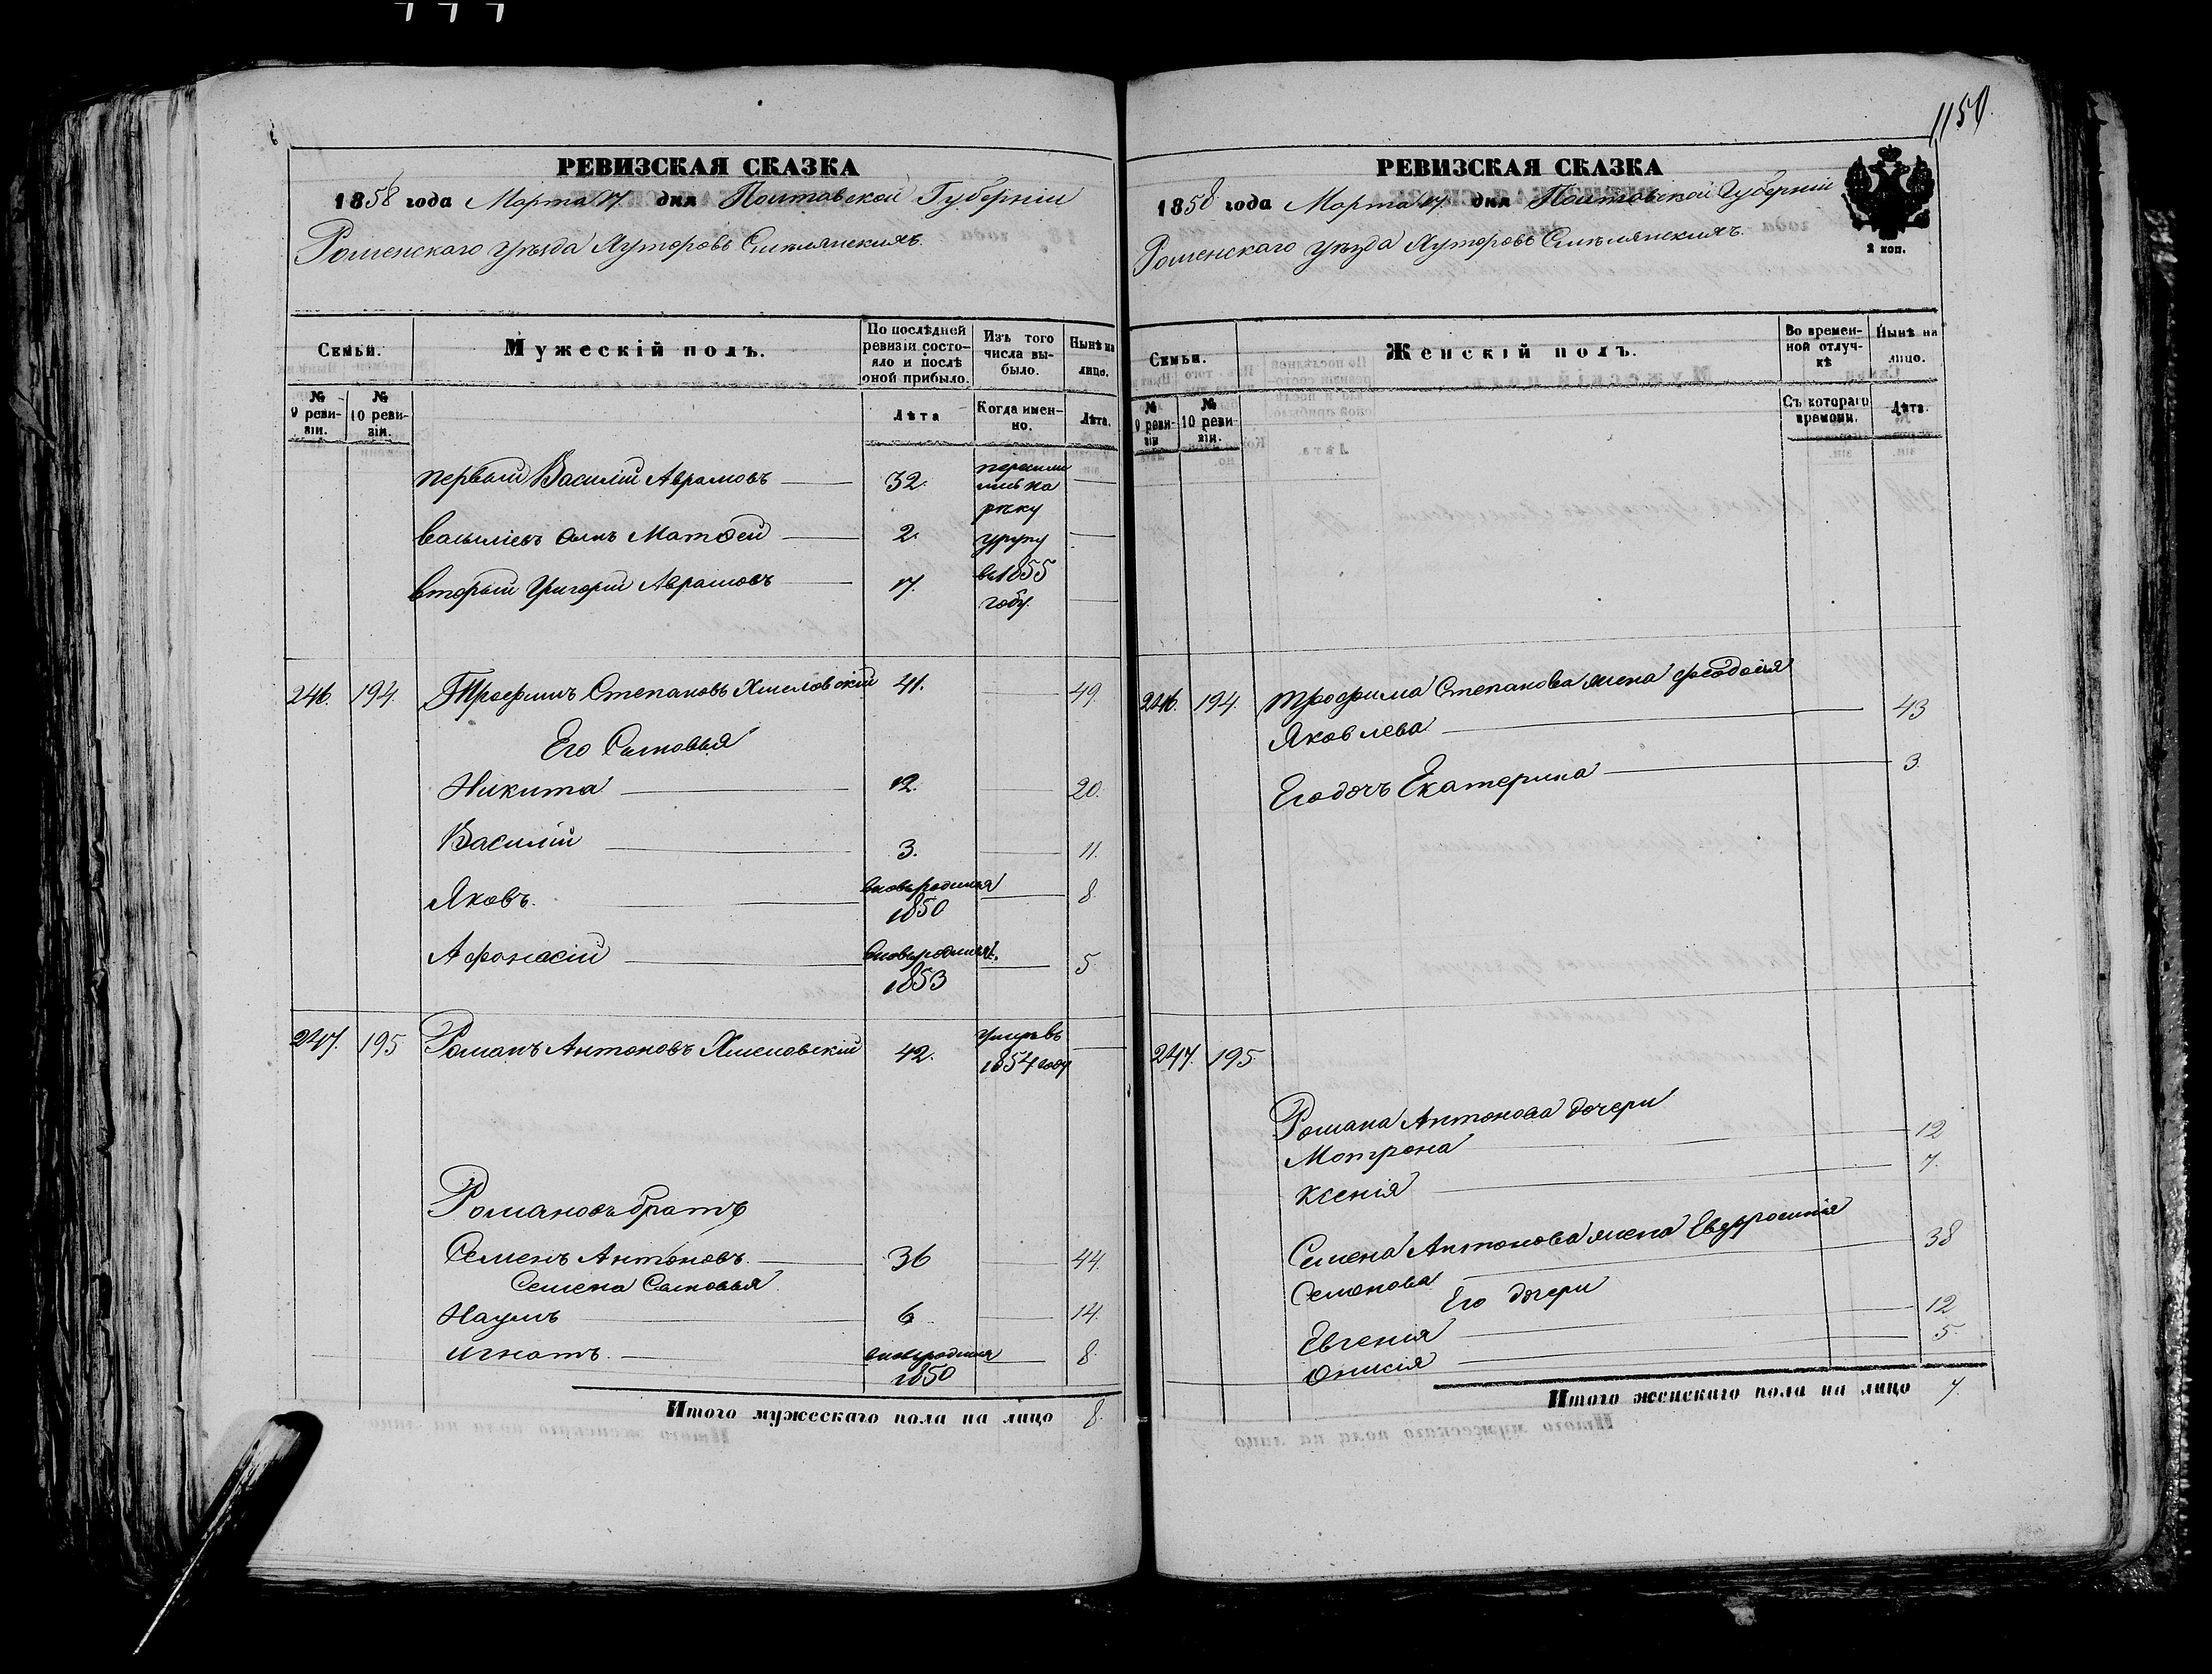 1150.
РЕВИЗСКАЯ СКАЗКА
1858 года Марта 17. дня Полтавской Губерніи
Роменскаго уѣзда Хуторовъ Смѣлянскихъ.
Семьи.
Мужескій полъ.
По послѣдней ревизіи состояло и послѣ оной прибыло.
Изъ того числа выбыло.
Нынѣ на лицо.
№ 9 ревизіи.
№ 10 ревизіи.
Лѣта
Когда именно.
Лѣта.
первый Василій Аврамовъ 32.
васильевъ сынъ Матѳей 2.
вторый Григорій Аврамовъ 17.
на
рѣку
урупу
въ 1855
году.
246. 194. Трофимъ Степановъ Хмеловскій 41. 49.
Его Сыновья
Никита 12. 20.
Василій 3. 11.
Яковъ. вновьродился 1850 8.
Афонасій вновьродился. 1853 5
247. 195 Романъ Антоновъ Хмеловскій 42. умеръ въ 1854 году
Романовъ братъ
Семенъ Антоновъ. 36 44.
Семена Сыновья
Наумъ 6 14.
Игнатъ. вновьродился 1850 8.
Итого мужескаго пола на лицо 8.
РЕВИЗСКАЯ СКАЗКА
1858 года Марта 17. дня Полтавской Губерніи
Роменскаго уѣзда Хуторовъ Смѣлянскихъ.
2 коп.
Семьи.
Женскій полъ.
Во временной отлучкѣ
Нынѣ на лицо.
№ 9 ревизіи
№ 10 ревизіи.
Съ котораго времени.
Лѣта.
246. 194. Трофима Степанова жена феодосія
Яковлева 43
Его дочь Екатерина 3
247. 195.
Романа Антонова дочери
Мотрона 12
Ксенія 7.
Семена Антонова жена Евдфросинія
Семенова 38
Его дочери
Евгенія 12
Онисія 5
Итого женскаго пола на лицо 7.